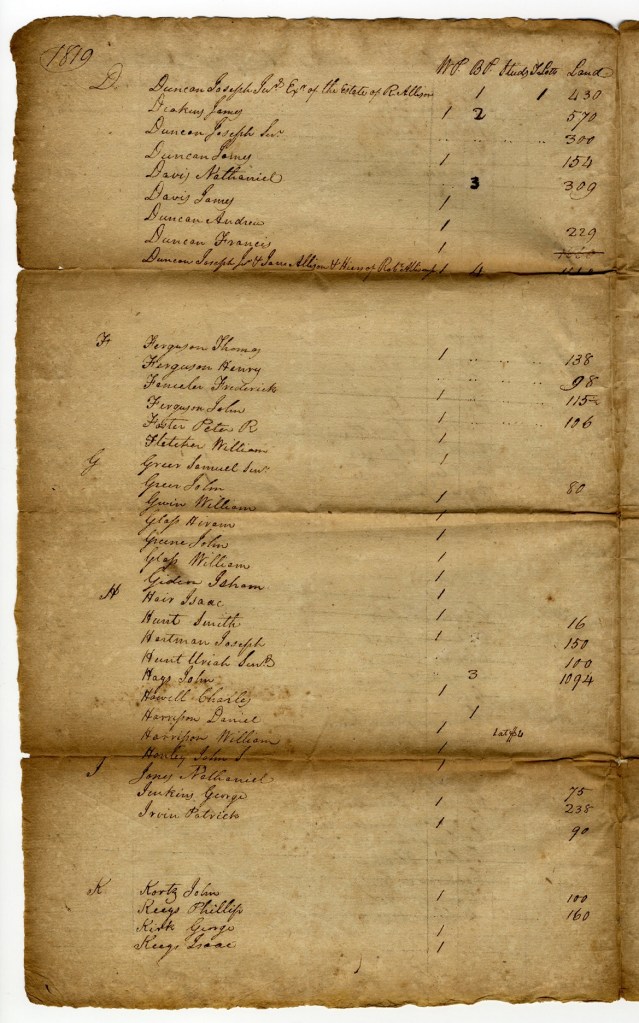 1819
W P. B P. Studs T Lots Land
D Duncan Joseph Senr. Exr. of the Estate of R. Allison 1 1 430
Deakins James 1 2 570
Duncan Joseph Senr. 300
Duncan James 1 154
Davis Nathaniel 3 309
Davis James 1
Duncan Andrew 1 229
Duncan Francis 1
Duncan Joseph Jr. & Jane Allison & Heirs of Robt. 1 4
F Ferguson Thomas 1 138
Ferguson Henry 98
Frederick 1 115
Ferguson John 106
Foster Peter R 1
Fletcher William 1
G Greer Samuel Senr. 80
Greer John 1
Gwin William 1
Glass Hiram 1
Greene John 1
Glass William 1
Giden Isham 1
H Hair Isaac 1
Hunt Smith 1 16
Hartman Joseph 1 150
Hunt Uriah Senr. 100
Hays John 3 1094
Howell Charles 1
Harrison Daniel 1
Harrison William 1 1 at $4
Henley John S 1
J Jones Nathaniel 1
Jenkins George 1 75
Irvin Patrick 238
1 90
K Kortz John 1 100
Keeys Phillip 160
Kirk George 1
Keeys Isaac 1